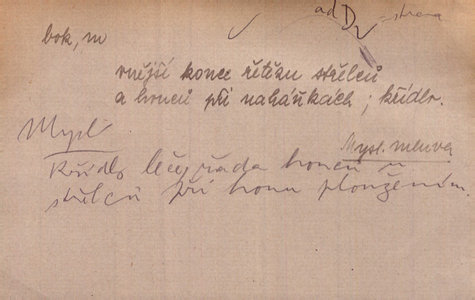 ad D2 strana
bok, m
vnější konec řetězu střelců
a honců při naháňkách; křídlo.
Mysl. mluva
Mysl
Křídlo leč, řada honců u
střelců při honu ploužením.